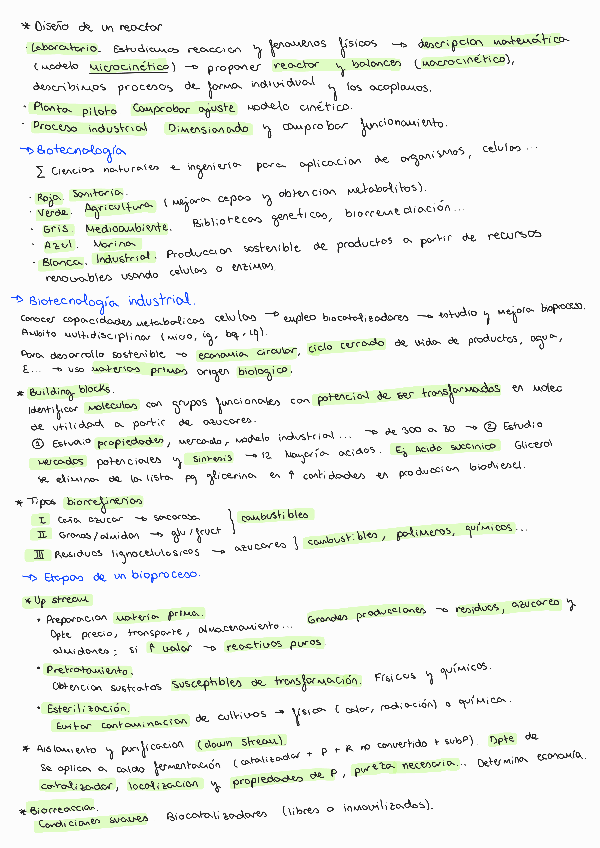 * Diseño de un reactor
· Laboratorio. Estudiamos reaccion y fenomenos físicos → descripcion matemática
(modelo microcinético) → proponer reactor y balances (macrocinético),
describimos procesos de forma individual y los acoplamos.
· Planta piloto Comprobar ajuste modelo cinético.
· Proceso industrial Dimensionado y comprobar funcionamiento.
→ Biotecnología
∑ Ciencias naturales e ingeniería para aplicacion de organismos, celulas...
· Roja. Sanitaria.
· Verde. Agricultura (mejora cepas y obtencion metabolitos).
· Gris. Medioambiente. Bibliotecas geneticas, biorremediación...
· Azul. Marina
· Blanca. Industrial. Produccion sostenible de productos a partir de recursos
renovables usando celulas o enzimas
→ Biotecnología industrial.
Conocer capacidades metabolicas celulas → empleo biocatalizadores → estudio y mejora bioproceso.
Ambito multidisciplinar (micro, ig, bq, iq).
Para desarrollo sostenible → economia circular, ciclo cerrado de vida de productos, agua,
E... → uso materias primas origen biologico.
* Building blocks.
Identificar moleculas con grupos funcionales con potencial de ser transformados en molec
de utilidad a partir de azucares.
① Estudio propiedades, mercado, modelo industrial... → de 300 a 30 → ② Estudio
mercados potenciales y sintesis → 12 Mayoría acidos. Ej Acido succinico Glicerol
se elimina de la lista pq glicerina en ↑ cantidades en produccion biodiesel.
* Tipos biorrefinerias
I Caña azucar → sacarosa } combustibles
II Granos/almidon → glu/fruct
III Residuos lignocelulosicos → azucares } combustibles, polimeros, químicos...
→ Etapas de un bioproceso.
* Up stream
· Preparacion materia prima. Grandes producciones → residuos, azucares y
Dpte precio, transporte, almacenamiento...
almidones; si ↑ valor → reactivos puros
· Pretratamiento.
Obtencion sustratos susceptibles de transformación. Físicos y químicos.
· Esterilización.
Evitar contaminacion de cultivos → física (calor, radiación) o química.
* Aislamiento y purificacion (down stream). Dpte de
Se aplica a caldo fermentación (catalizador + P + R no convertido + subP).
catalizador, localizacion y propiedades de P, pureza necesaria... Determina economía.
* Biorreaccion.
Condiciones suaves Biocatalizadores (libres o inmovilizados).